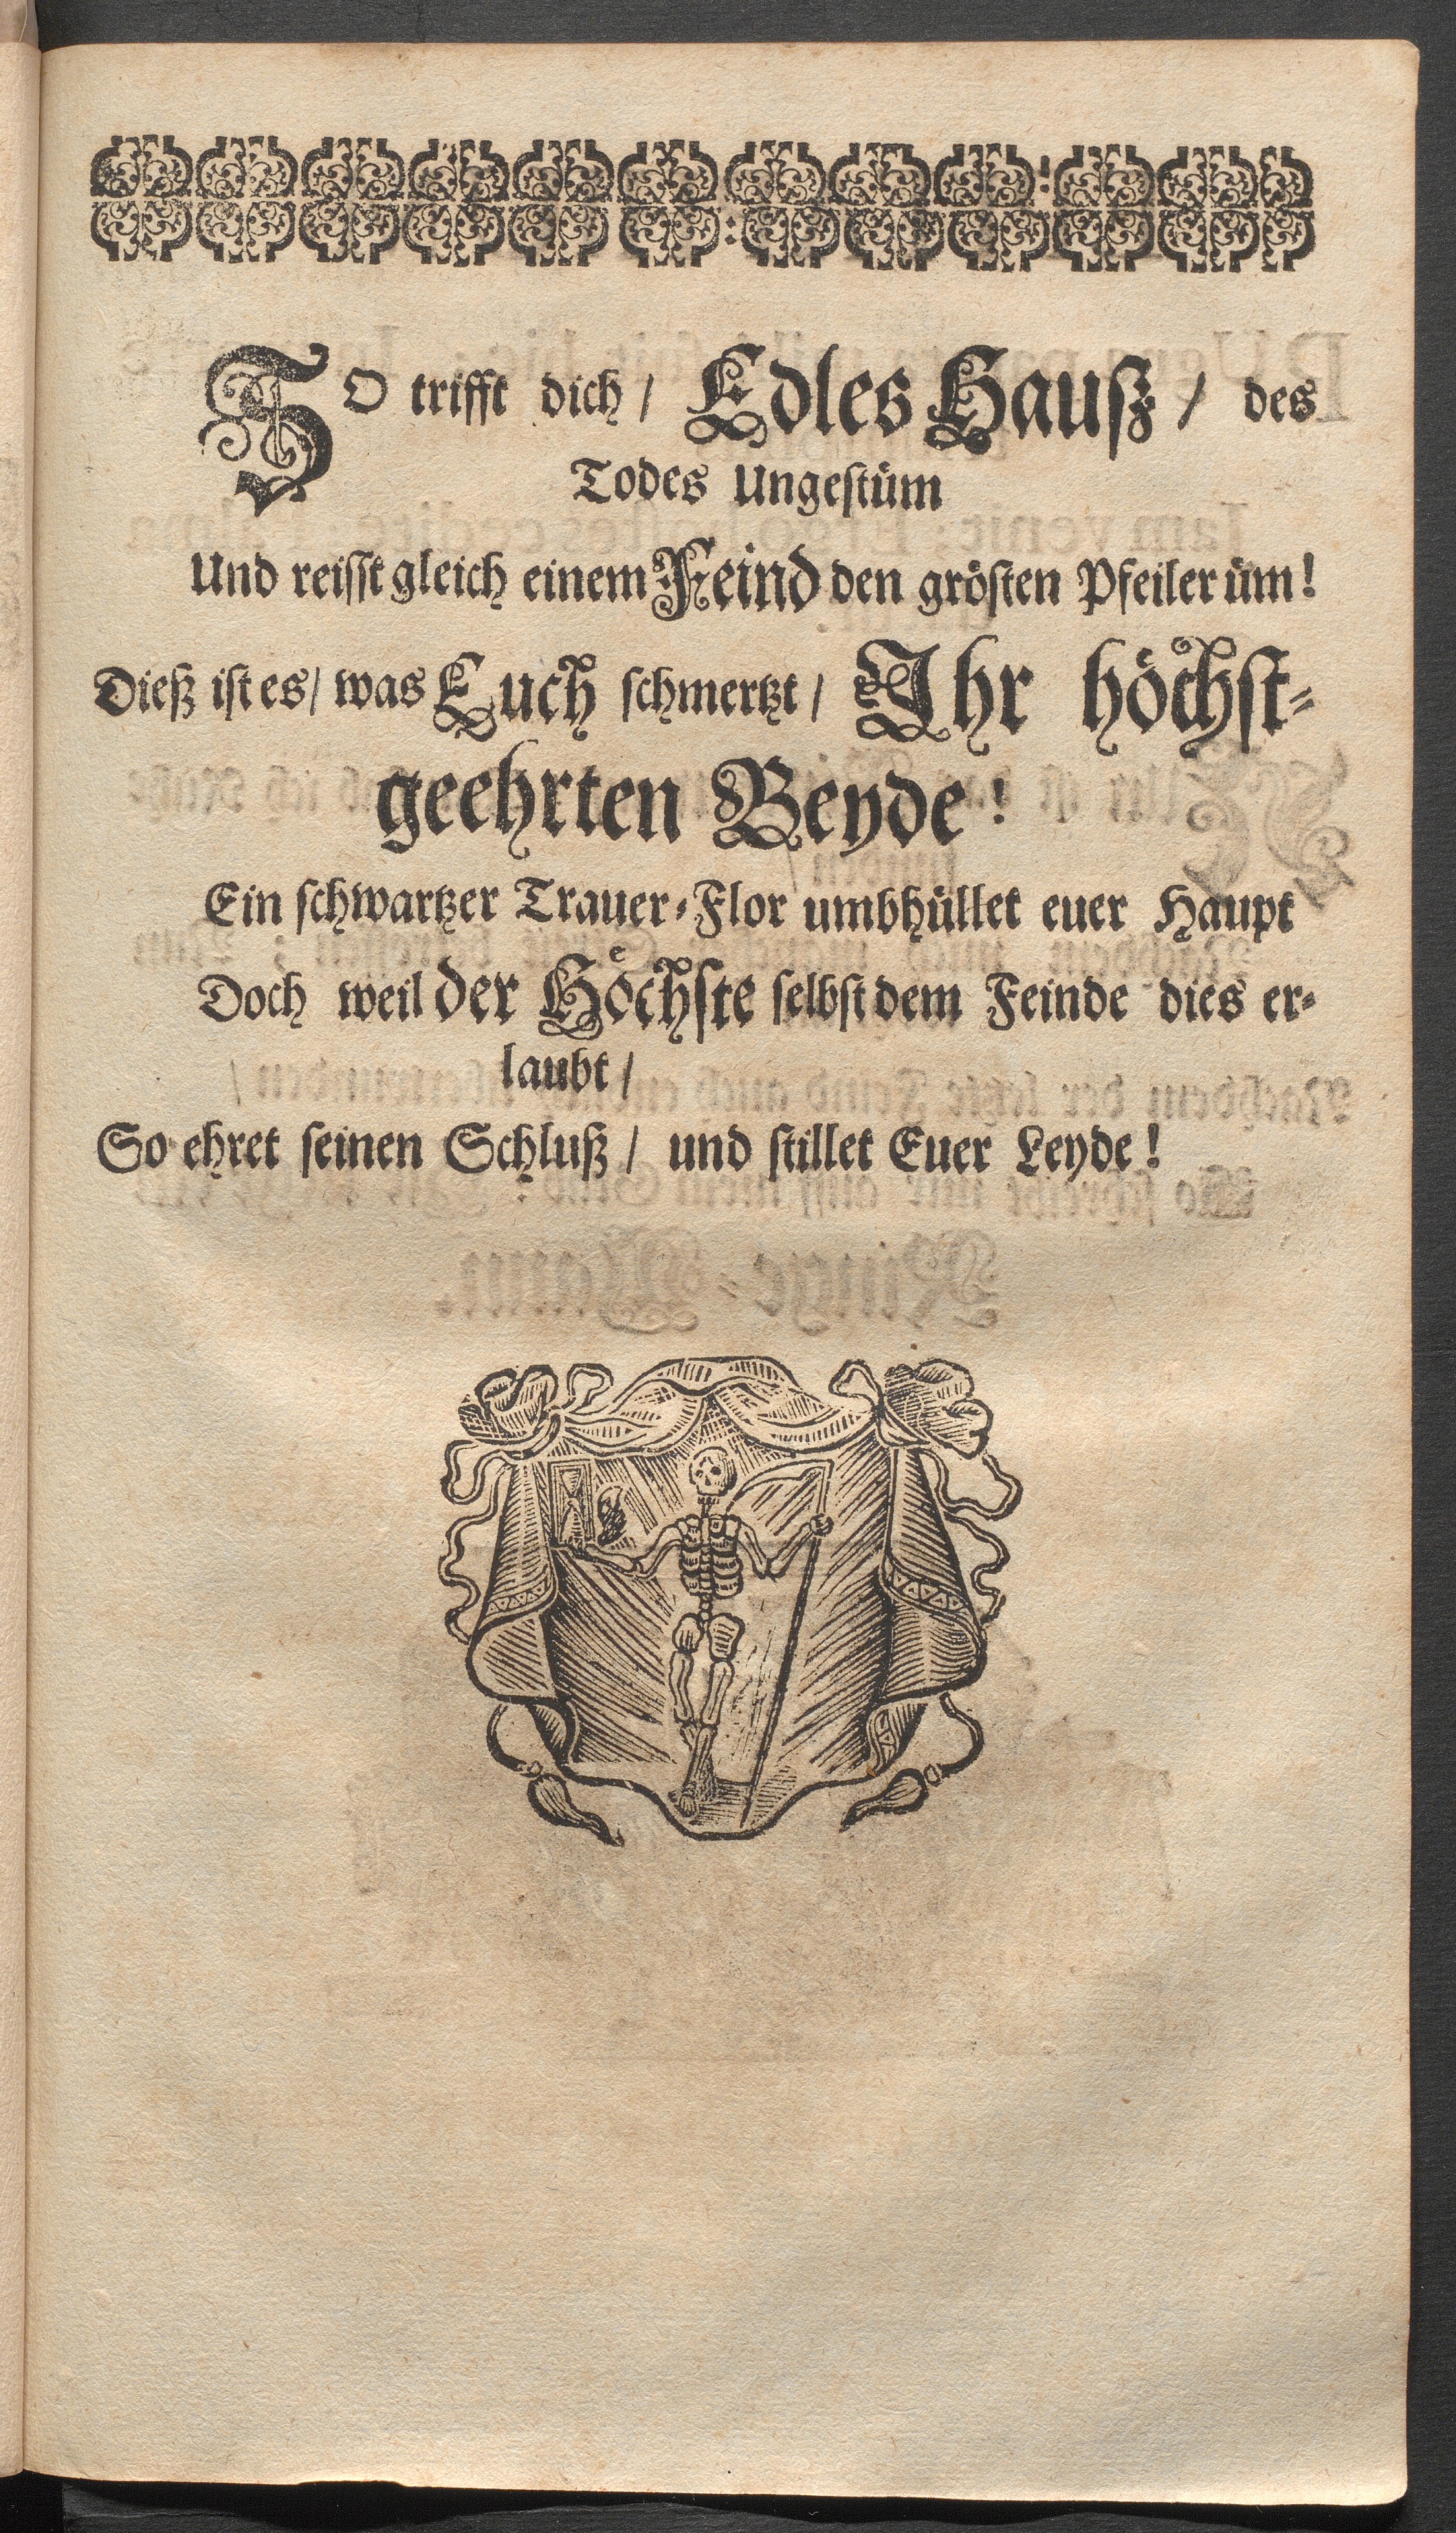 SO trifft dich / Edles Hauß / des
Todes Ungestüm
Und reisst gleich einem Feind den grösten Pfeiler üm!
Dieß ist es / was Euch schmertzt / Ihr höchst-
geehrten Beyde!
Ein schwartzer Trauer-Flor umbhüllet euer Haupt
Doch weil der Höchste selbst dem Feinde dies er-
laubt /
So ehret seinen Schluß / und stillet Euer Leyde!